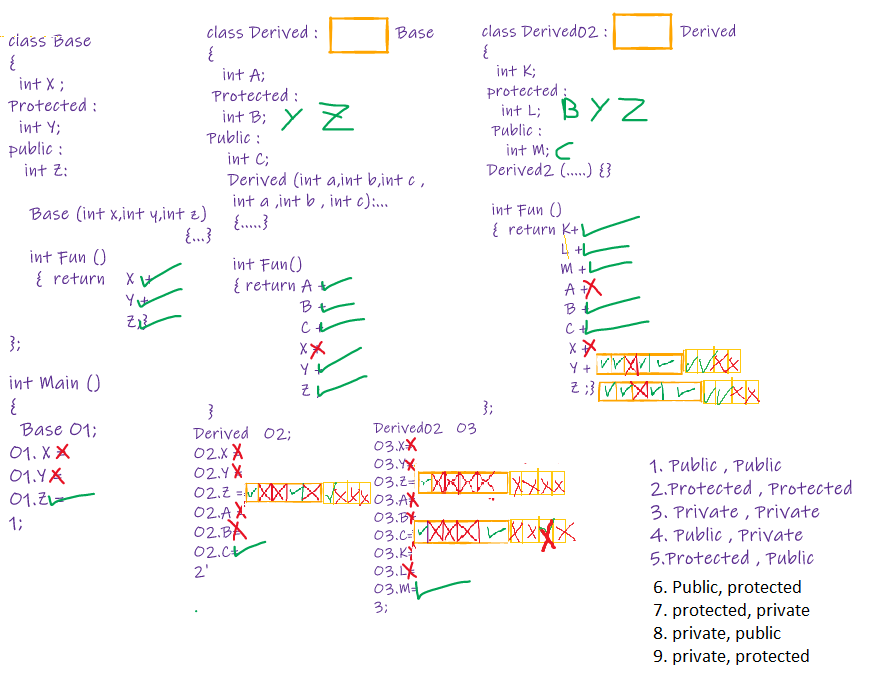 class Base
{
int X ;
Protected :
int Y;
public :
int Z:
Base (int x,int y,int z)
{...}
int Fun ()
{ return X +
Y +
Z;}
};
int Main ()
{
Base O1;
O1. X =
O1.Y =
O1.Z =
1;
class Derived : Base
{
int A;
Protected :
int B; Y Z
Public :
int C;
Derived (int a,int b,int c ,
int a ,int b , int c):...
{.....}
int Fun()
{ return A +
B +
C +
X +
Y +
Z
}
Derived O2;
O2.X =
O2.Y =
O2.Z =
O2.A =
O2.B=
O2.C=
2'
class Derived02 : Derived
{
int K;
protected :
int L; B Y Z
Public :
int M; C
Derived2 (.....) {}
int Fun ()
{ return K+
L +
M +
A +
B +
C +
X +
Y +
Z ;}
};
Derived02 O3
O3.X=
O3.Y=
O3.Z=
O3.A=
O3.B=
O3.C=
O3.K=
O3.L=
O3.M=
3;
1. Public , Public
2.Protected , Protected
3. Private , Private
4. Public , Private
5.Protected , Public
6. Public, protected
7. protected, private
8. private, public
9. private, protected